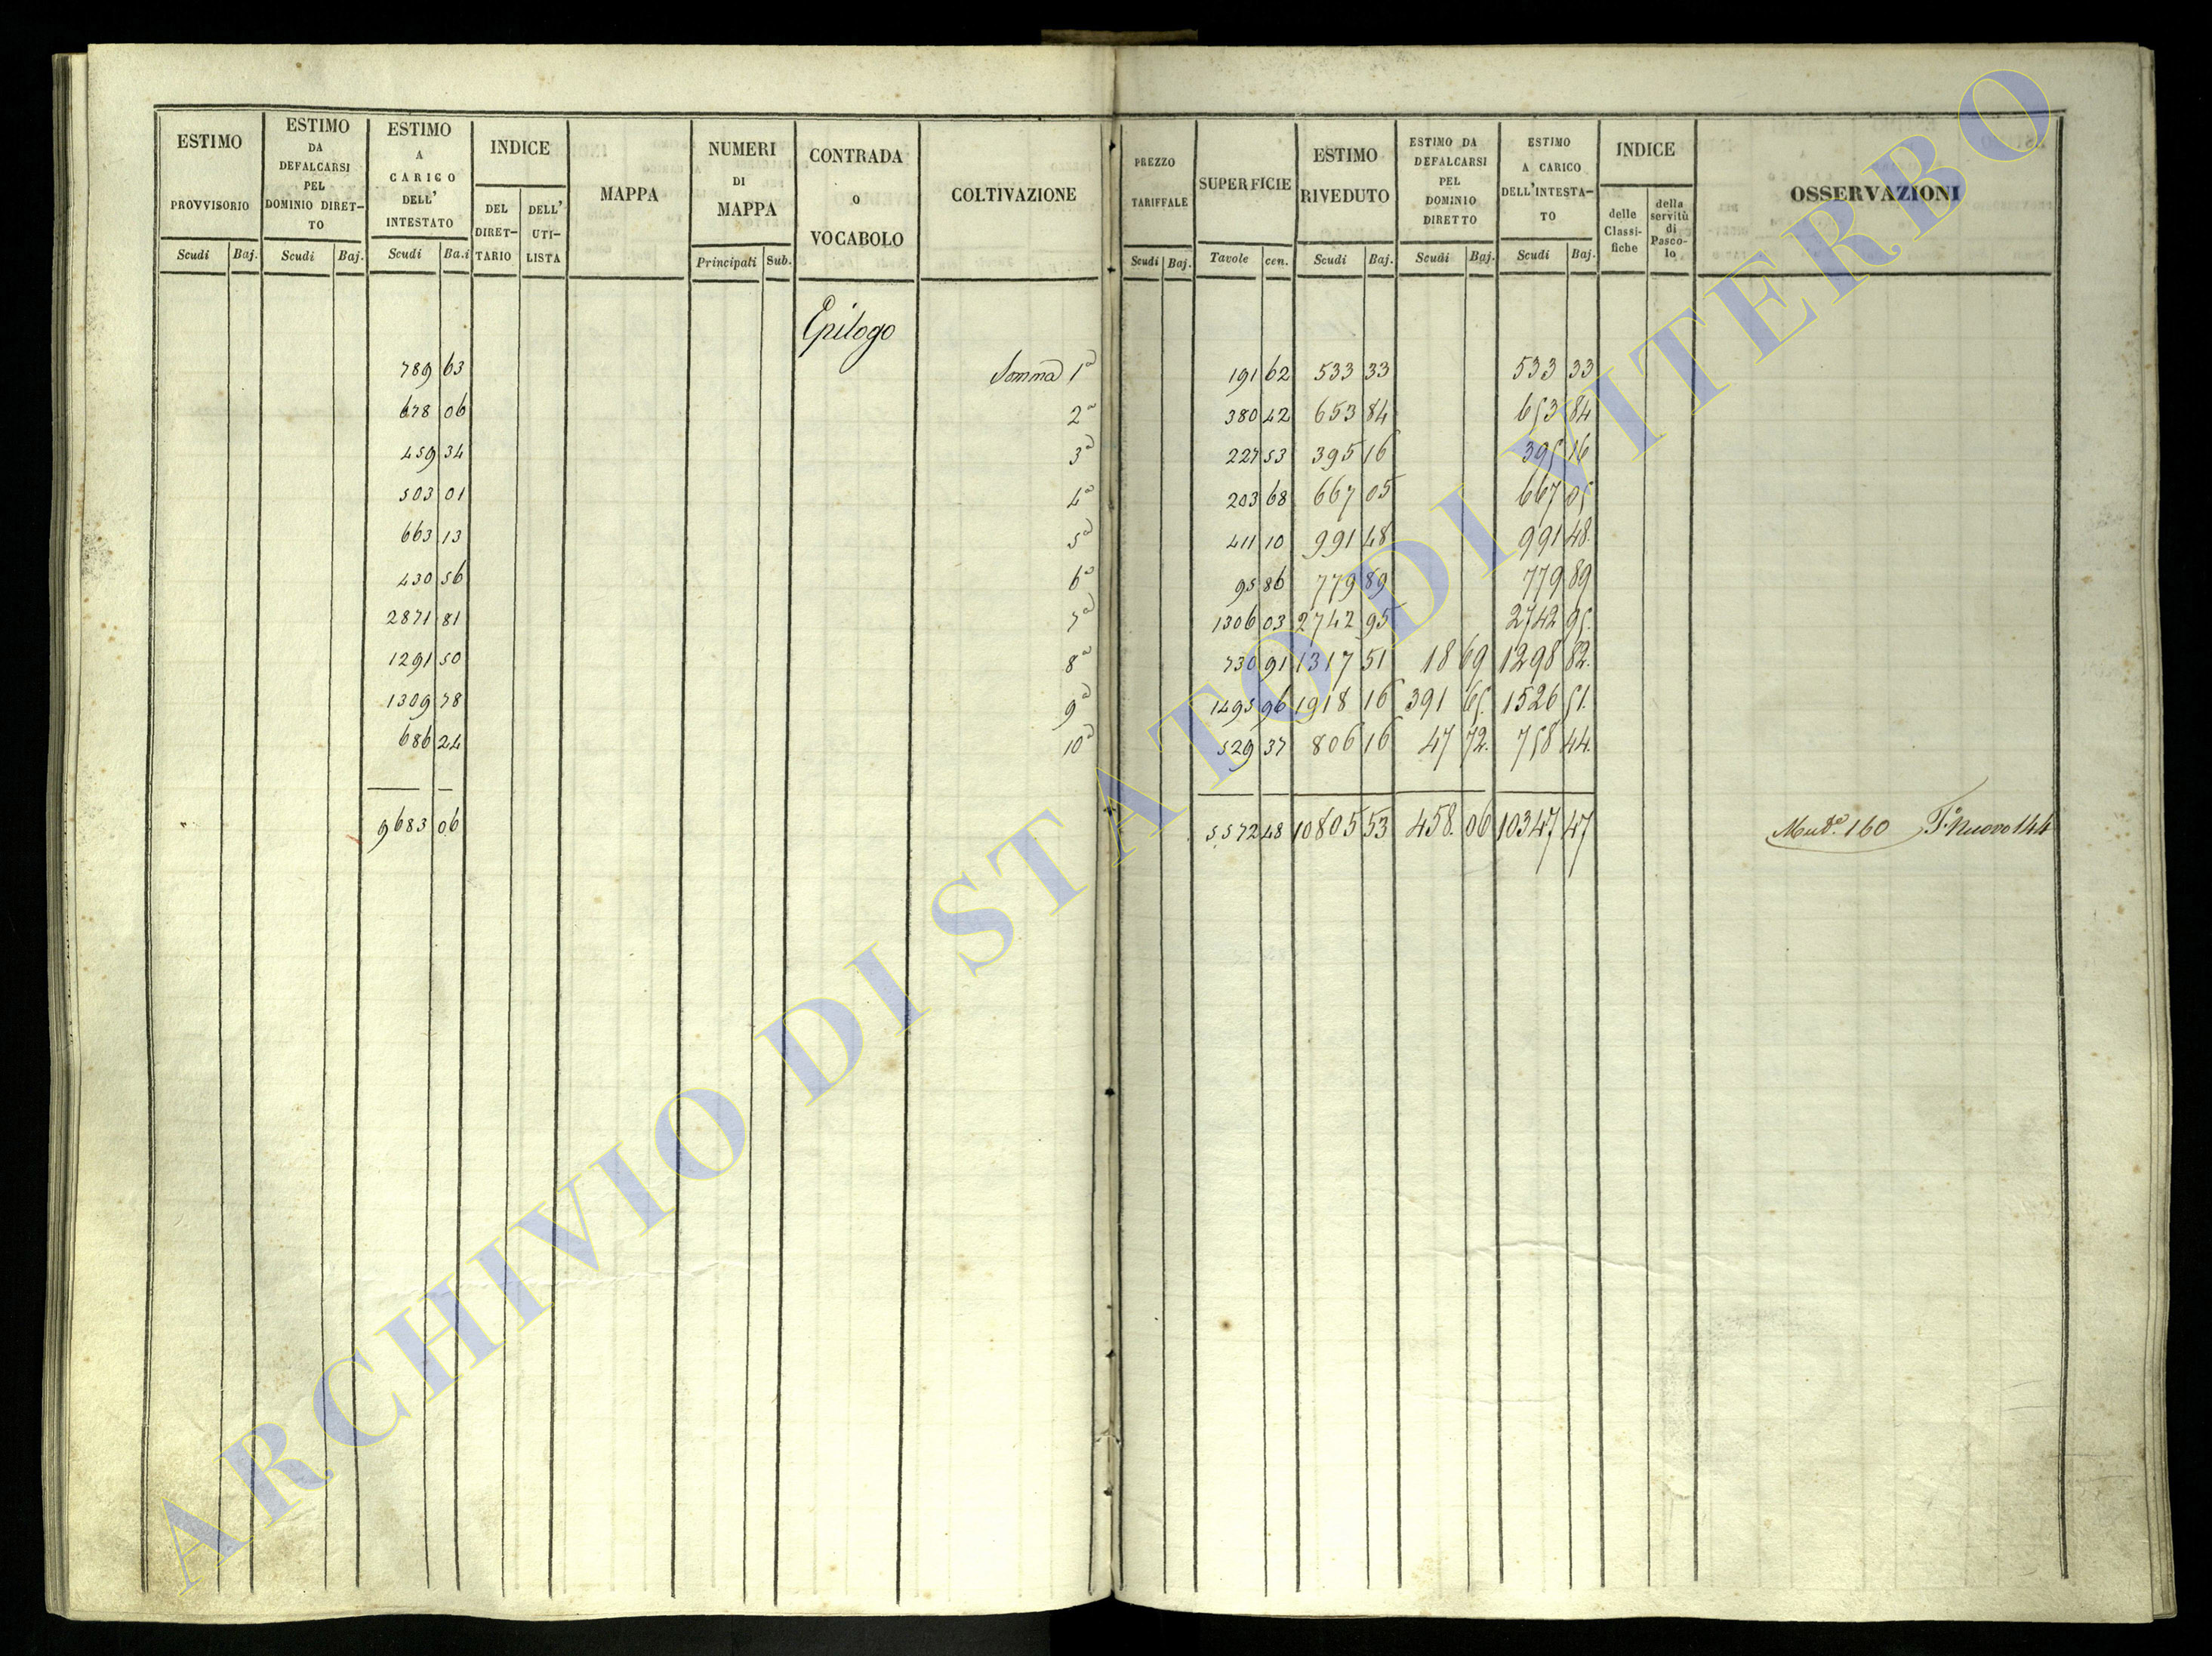 ESTIMO PROVVISORIO
Scudi Baj.
ESTIMO DA DEFALCARSI PEL DOMINIO DIRET-TO
Scudi Baj.
ESTIMO A CARICO DELL' INTESTATO
Scudi Ba.i
INDICE
DEL DIRET-TARIO
DELL' UTI-LISTA
MAPPA
NUMERI DI MAPPA
Principali Sub.
CONTRADA O VOCABOLO
COLTIVAZIONE
PREZZO TARIFFALE
Scudi Baj.
SUPERFICIE
Tavole cen.
ESTIMO RIVEDUTO
Scudi Baj.
ESTIMO DA DEFALCARSI PEL DOMINIO DIRETTO
Scudi Baj.
ESTIMO A CARICO DELL'INTESTA-TO
Scudi Baj.
INDICE
delle Classi-fiche
della servitù di Pasco-lo
OSSERVAZIONI
Epilogo
789 63 Somma 1a 191 62 533 33 533 33
678 06 2a 380 42 653 84 653 84
459 34 3a 227 53 395 16 395 16
503 01 4a 203 68 667 05 667 05
663 13 5a 411 10 991 48 991 48.
430 56 6a 95 86 779 89 779 89
2871 81 7a 1306 03 2742 95 2742 95.
1291 50 8a 730 91 1317 51 18 69 1298 82.
1309 78 9a 1495 96 1918 16 391 65. 1526 51.
686 24 10a 529 37 806 16 47 72. 758 44.
9683 06 5572 48 10805 53 458. 06 10347 47 160 Nuovo 144
ARCHIVIO DI STATO DI VITERBO